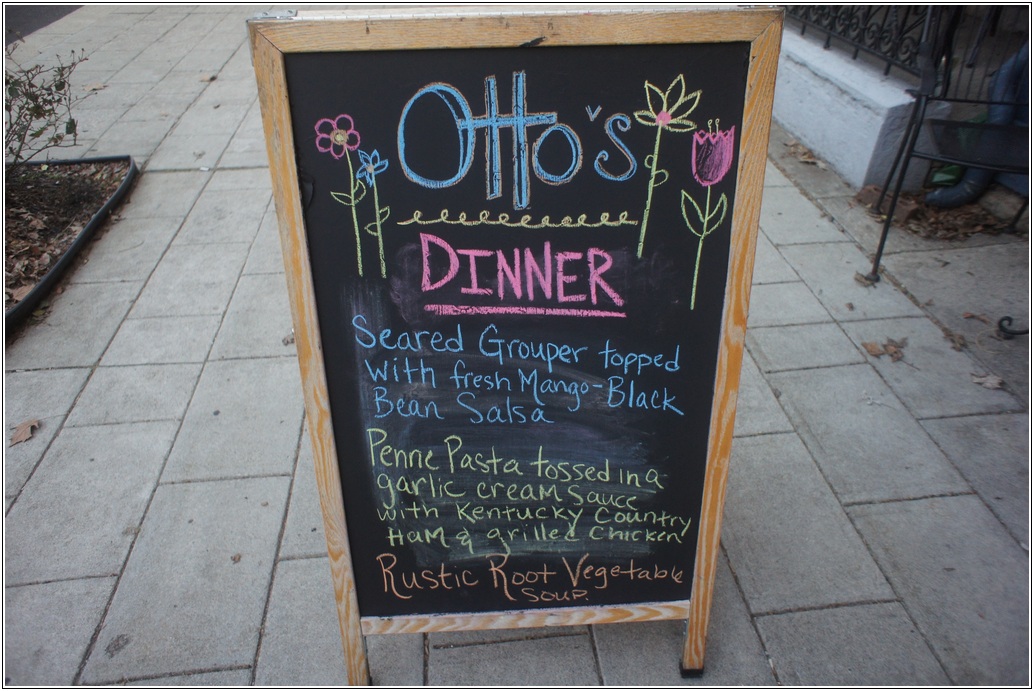 Otto's
DINNER
Seared Grouper topped
with fresh Mango-Black
Bean Salsa
Penne Pasta tossed in a
garlic cream sauce
with Kentucky Country
Ham & grilled Chicken
Rustic Root Vegetable
Soup.